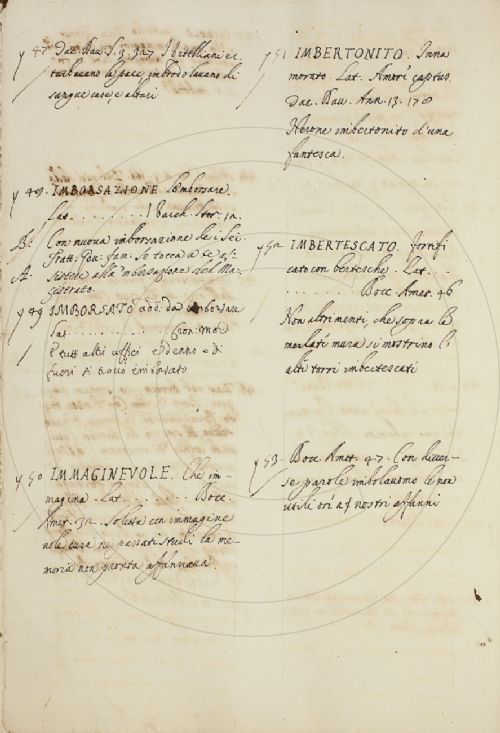 y 47 Dav. Stor. 3. 327 I Vitelliani
turbavano la pace, imbrodolavano di
sangue case, e altari
y 49. IMBORSAZIONE Lo 'mborsare.
Lat. . . . . . . . . Stor. 12.
B. Con nuova imborsazione de i Sei.
A. Tratt. Gov. fam. Se tocca a te as-
sistere alla 'mborsazione del Ma-
gistrato.
y 49 IMBORSATO add. da imborsare
Lat. . . . . . . . . Gion. Mor.
E tutti altri uffici e dentro e di
fuori si trovò imborsato
y 50 IMMAGINEVOLE. Che im-
magina. Lat. . . . . . . Bocc.
Amet. 32. Solesta con immagine
vole cura ne passati studi la me-
moria non pronta affannava.
y 51 IMBERTONITO. Inna
morato. Lat. Amori captus.
Dav. Ann. 13. 178
Nerone imbertonito d'una
fantesca.
y 52 IMBERTESCATO. Fortifi
cato con bertesche. Lat. . .
. . . . . . . . Bocc. Amet. 46
Non altrimenti, che sopra le
merlate mura si mostrino l'
alti torri imbertescati
y 53. Bocc Amet. 47. Con diver-
se parole imbolavamo le non
utili ori a' nostri affanni